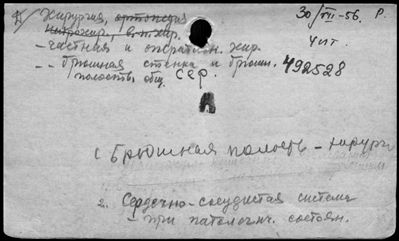 Хирургия, ортопедия
нейрохир, в.п.хир.
30/VII-56. Р.
- частная и оператион. хир.
4 ит.
- - Брюшная стенка и брюшн.
492528
полость общ. сер.
1. Брюшная полость - хирург
2. Сердечно-сосудистая система
- при патологич. состоян.